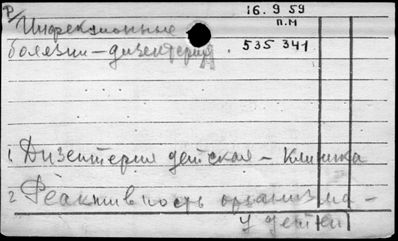 Р/
16.9 59
п.м
Инфекционные
болезни – дизентерия.
535 341
1. Дизентерия детская – Клиника
2 Реактивность организма –
у детей